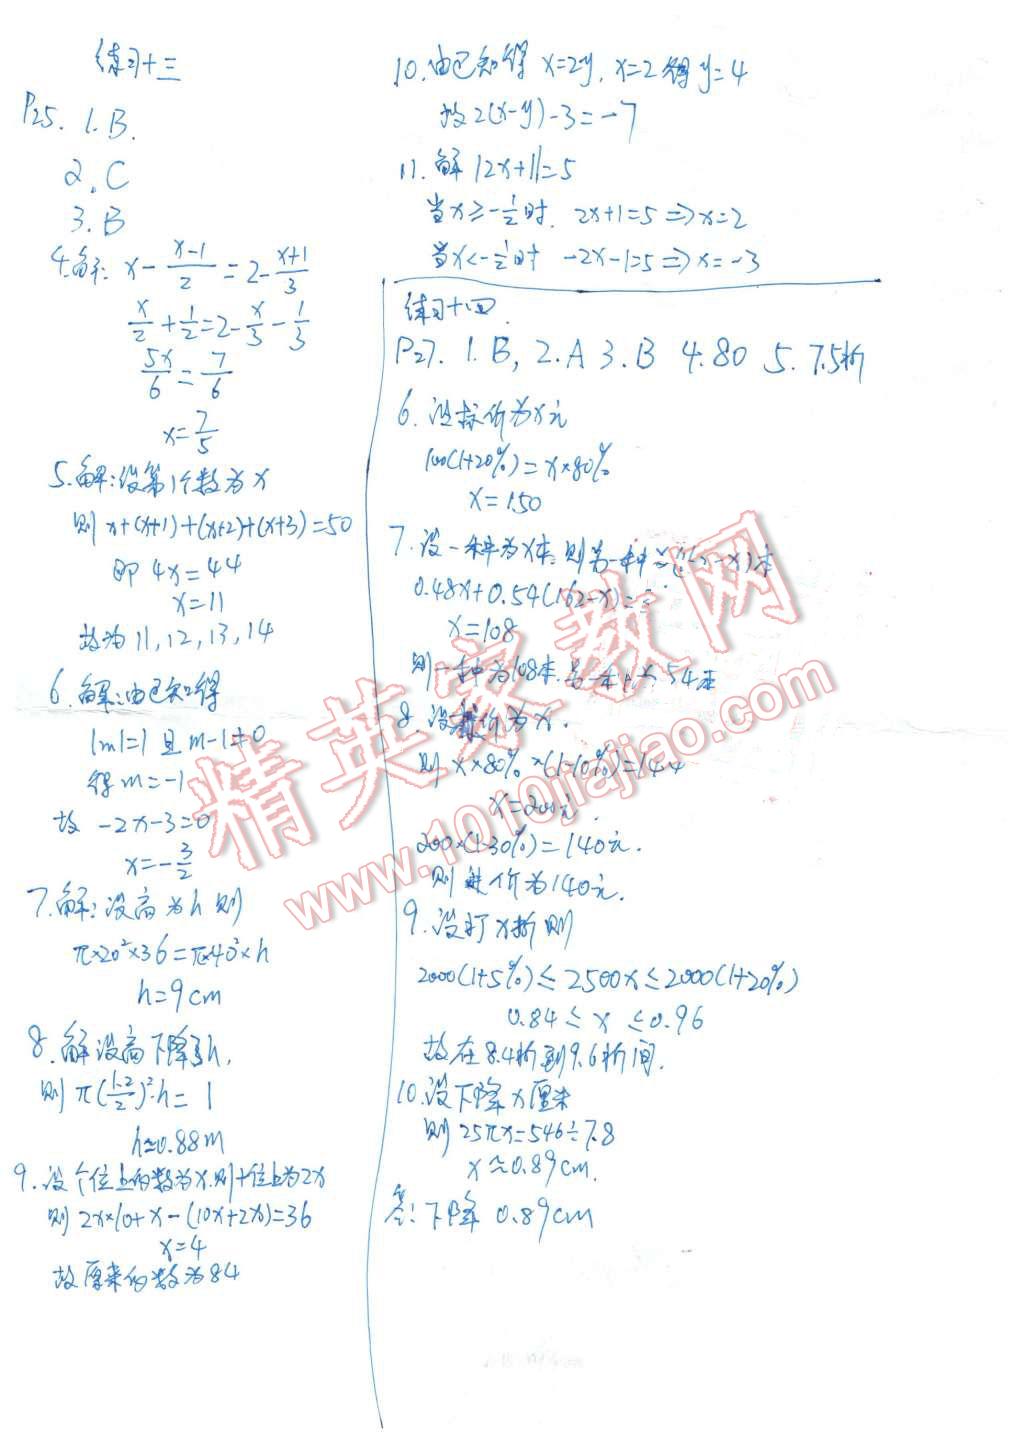 练习十三
P25. 1.B.
2.C
3.B
4.解: x - (x-1)/2 = 2 - (x+1)/3
x/2 + 1/2 = 2 - x/3 - 1/3
5x/6 = 7/6
x = 7/5
5.解:设第1个数为x
则 x+(x+1)+(x+2)+(x+3)=50
即 4x=44
x=11
故为11,12,13,14
6.解:由已知得
|m|=1 且 m-1≠0
得 m=-1
故 -2x-3=0
x=-3/2
7.解:设高为h 则
π×20²×36=π×40²×h
h=9cm
8.解设高下降了h,
则 π(1.2/2)²·h=1
h≈0.88m
9.设个位上的数为x.则十位上为2x
则 2x×10+x-(10x+2x)=36
x=4
故原来的数为84
10.由已知得 x=2y, x=2得y=4
故 2(x-y)-3=-7
11.解 |2x+1|=5
当x≥-1/2时. 2x+1=5⇒x=2
当x<-1/2时 -2x-1=5⇒x=-3
练习十四.
P27. 1.B, 2.A 3.B 4.80 5. 7.5折
6.设标价为x元
100(1+20%)=x×80%
x=150
7.设一种为x本.则另一种为(162-x)本
0.48x+0.54(162-x)=
x=108
则一种为108本.另一本 54本
8.设标价为x.
则 x×80%×(1-10%)=144
x=200元.
200×(1-30%)=140元.
则进价为140元.
9.设打x折则
2000(1+5%)≤2500x≤2000(1+20%)
0.84≤x≤0.96
故在8.4折到9.6折间.
10.设下降x厘米
则 25πx=546÷7.8
x≈0.89cm.
答:下降 0.89cm
精英家教网
www.1010jiajiao.com